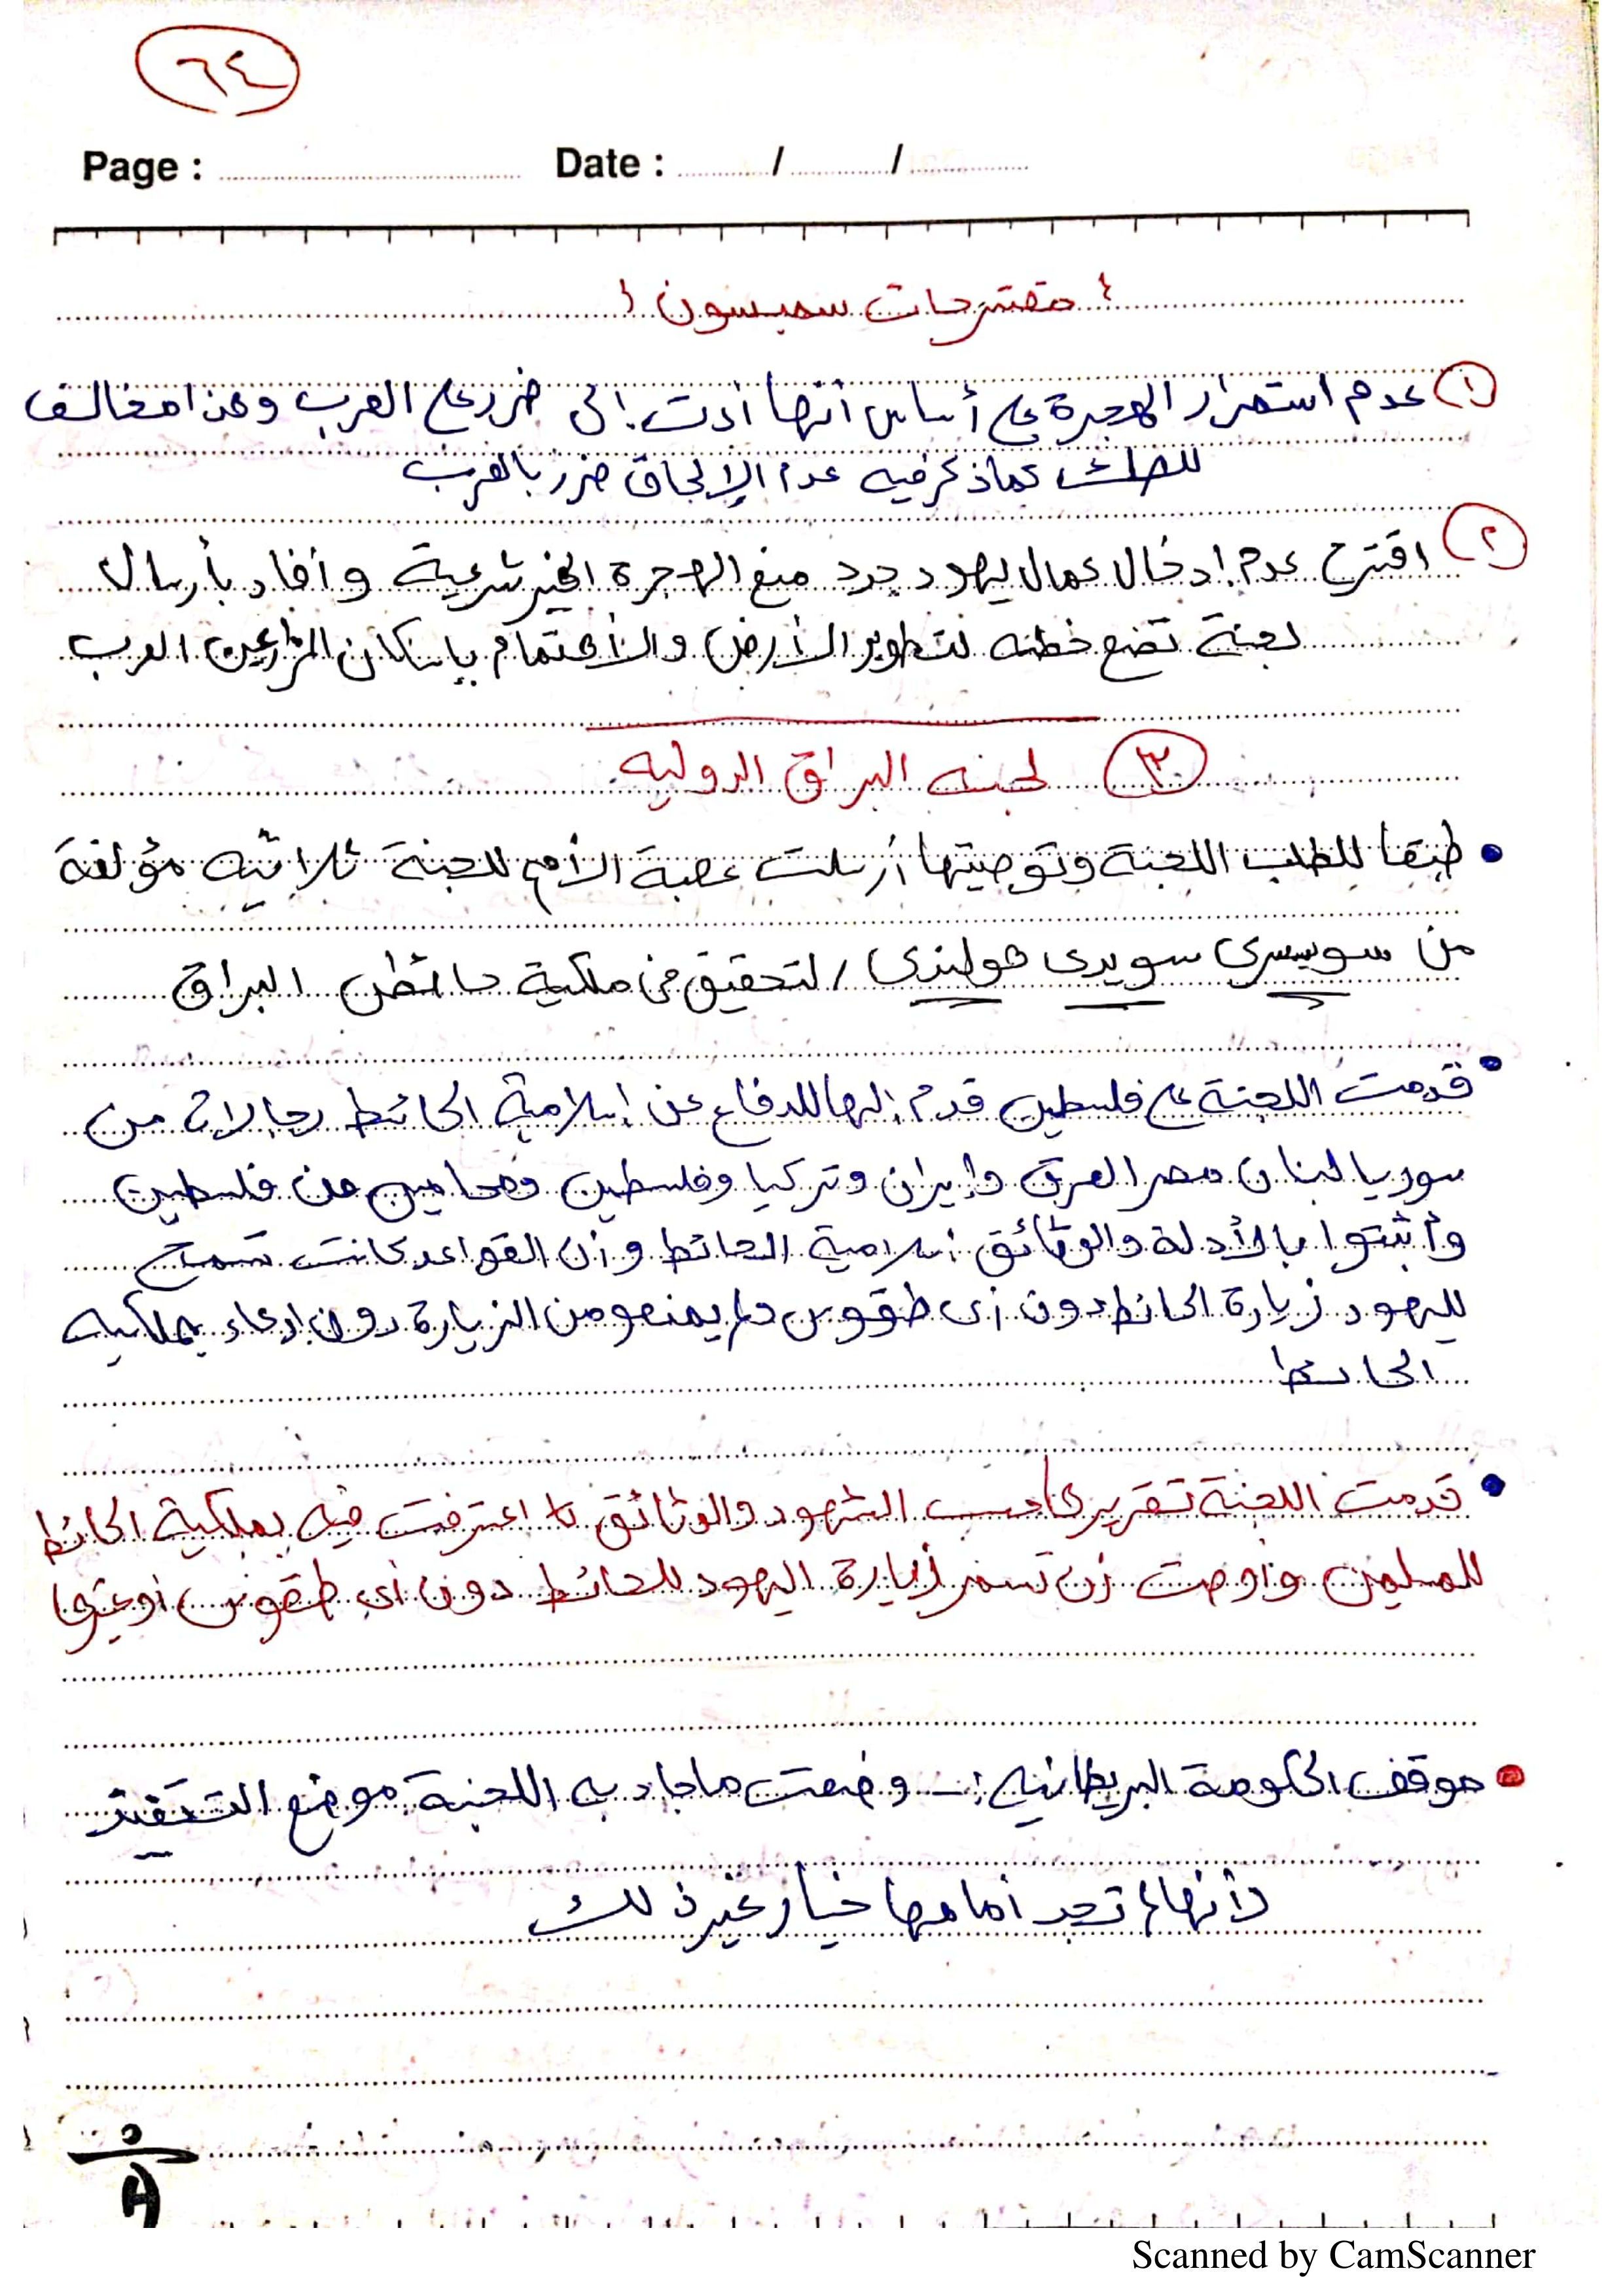 ٦٤
Page : Date : / /
مقترحات سمبسون
١ عدم استمرار الهجرة على أساس أنها أدت إلى ضرر على العرب وهذا مخالف
للصك كما ذكر فيه عدم الإلحاق ضرر بالعرب
٢ اقترح عدم إدخال عمال يهود جدد منع الهجرة الغير شرعية وأفاد بأرسال
لجنة تضع خطه لتطوير الأرض والأهتمام بإسكان المزارعين العرب
٣ لجنه البراق الدوليه
• طبقا للطلب اللجنة وتوصيتها أرسلت عصبة الأمم للجنة ثلاثيه مؤلفة
من سويسري سويدى هولندي / لتحقيق في ملكية حائط البراق
• قدمت اللجنة على فلسطين قدم إليها للدفاع عن إسلامية الحائط رجالات من
سوريا لبنان مصر العرق وإيران وتركيا وفلسطين ومحامين من فلسطين
وأثبتوا بالأدلة والوثائق أسلامية الحائط وأن القواعد كانت تسمح
لليهود زيارة الحائط دون أى طقوس ولم يمنعو من الزيارة دون إدعاء بملكيه
الحائط
• قدمت اللجنة تقريرها حسب الشهود والوثائق اعترفت فيه بملكية الحائط
للمسلمين وأوصت أن تستمر زيارة اليهود للحائط دون أي طقوس أو غيرها
• موقف الحكومة البريطانيه :- وضعت ما جاء به اللجنة موضع التنفيذ
لأنها لم تجد أمامها خيار غير ذلك
Scanned by CamScanner